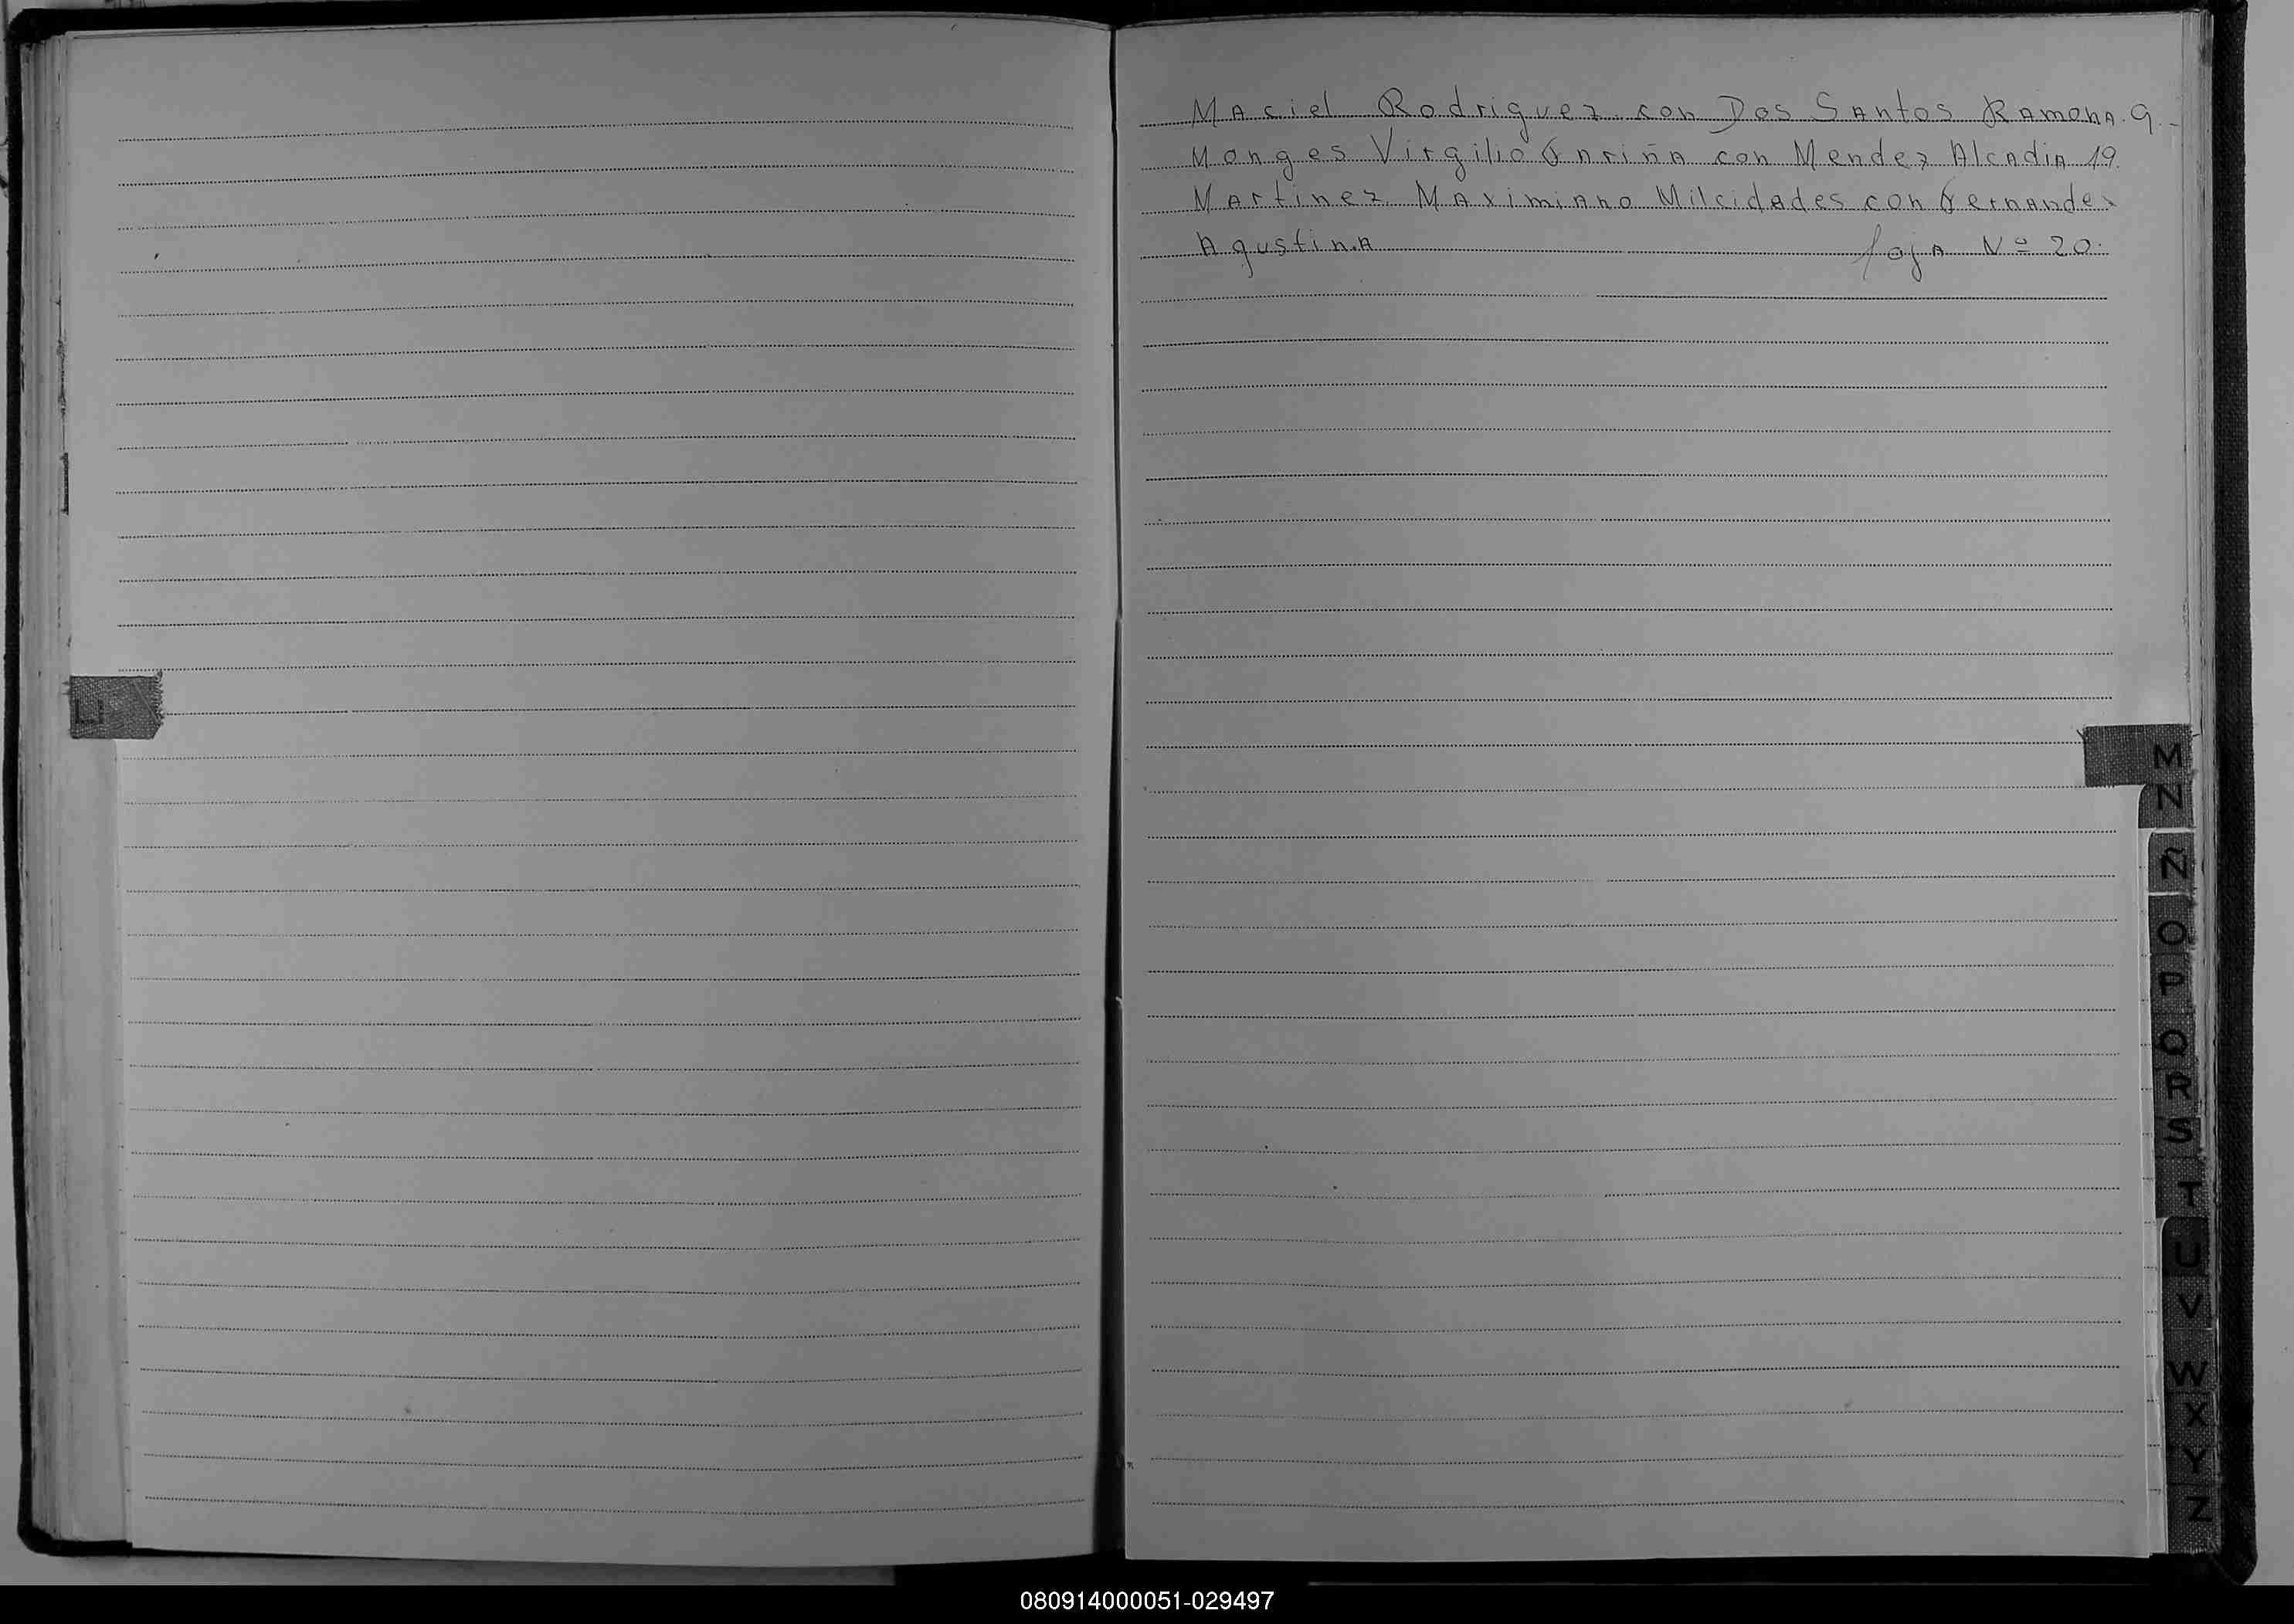 Maciel Rodriguez con Dos Santos Ramona. 9.-
Monges Virgilio Fariña con Mendez Alcadia 19.
Martinez Maximiano Milcidades con Fernandez
Agustina foja Nº 20.
LL
M
N
Ñ
O
P
Q
R
S
T
U
V
W
X
Y
Z
080914000051-029497